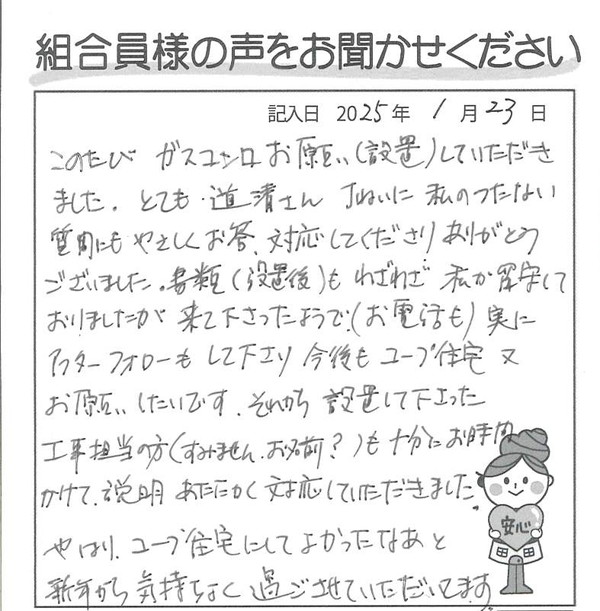 組合員様の声をお聞かせください
記入日 2025年 1月23日
このたび ガスコンロお願い(設置)していただき
ました。とても 道清さん 丁ねいに 私のつたない
質問にも やさしくお答、対応してくださり ありがとう
ございました。書類(設置後)も わざわざ 私が留守して
おりましたが 来て下さったようで(お電話も)実に
アフターフォローも して下さり 今後も コープ住宅 又
お願いしたいです。それから 設置して下さった
工事担当の方(すみません、お名前?)も 十分に お時間
かけて、説明 あたたかく 対応していただきました
やはり、コープ住宅にして よかったなあと
新年から 気持ちよく 過ごさせていただいてます
安心